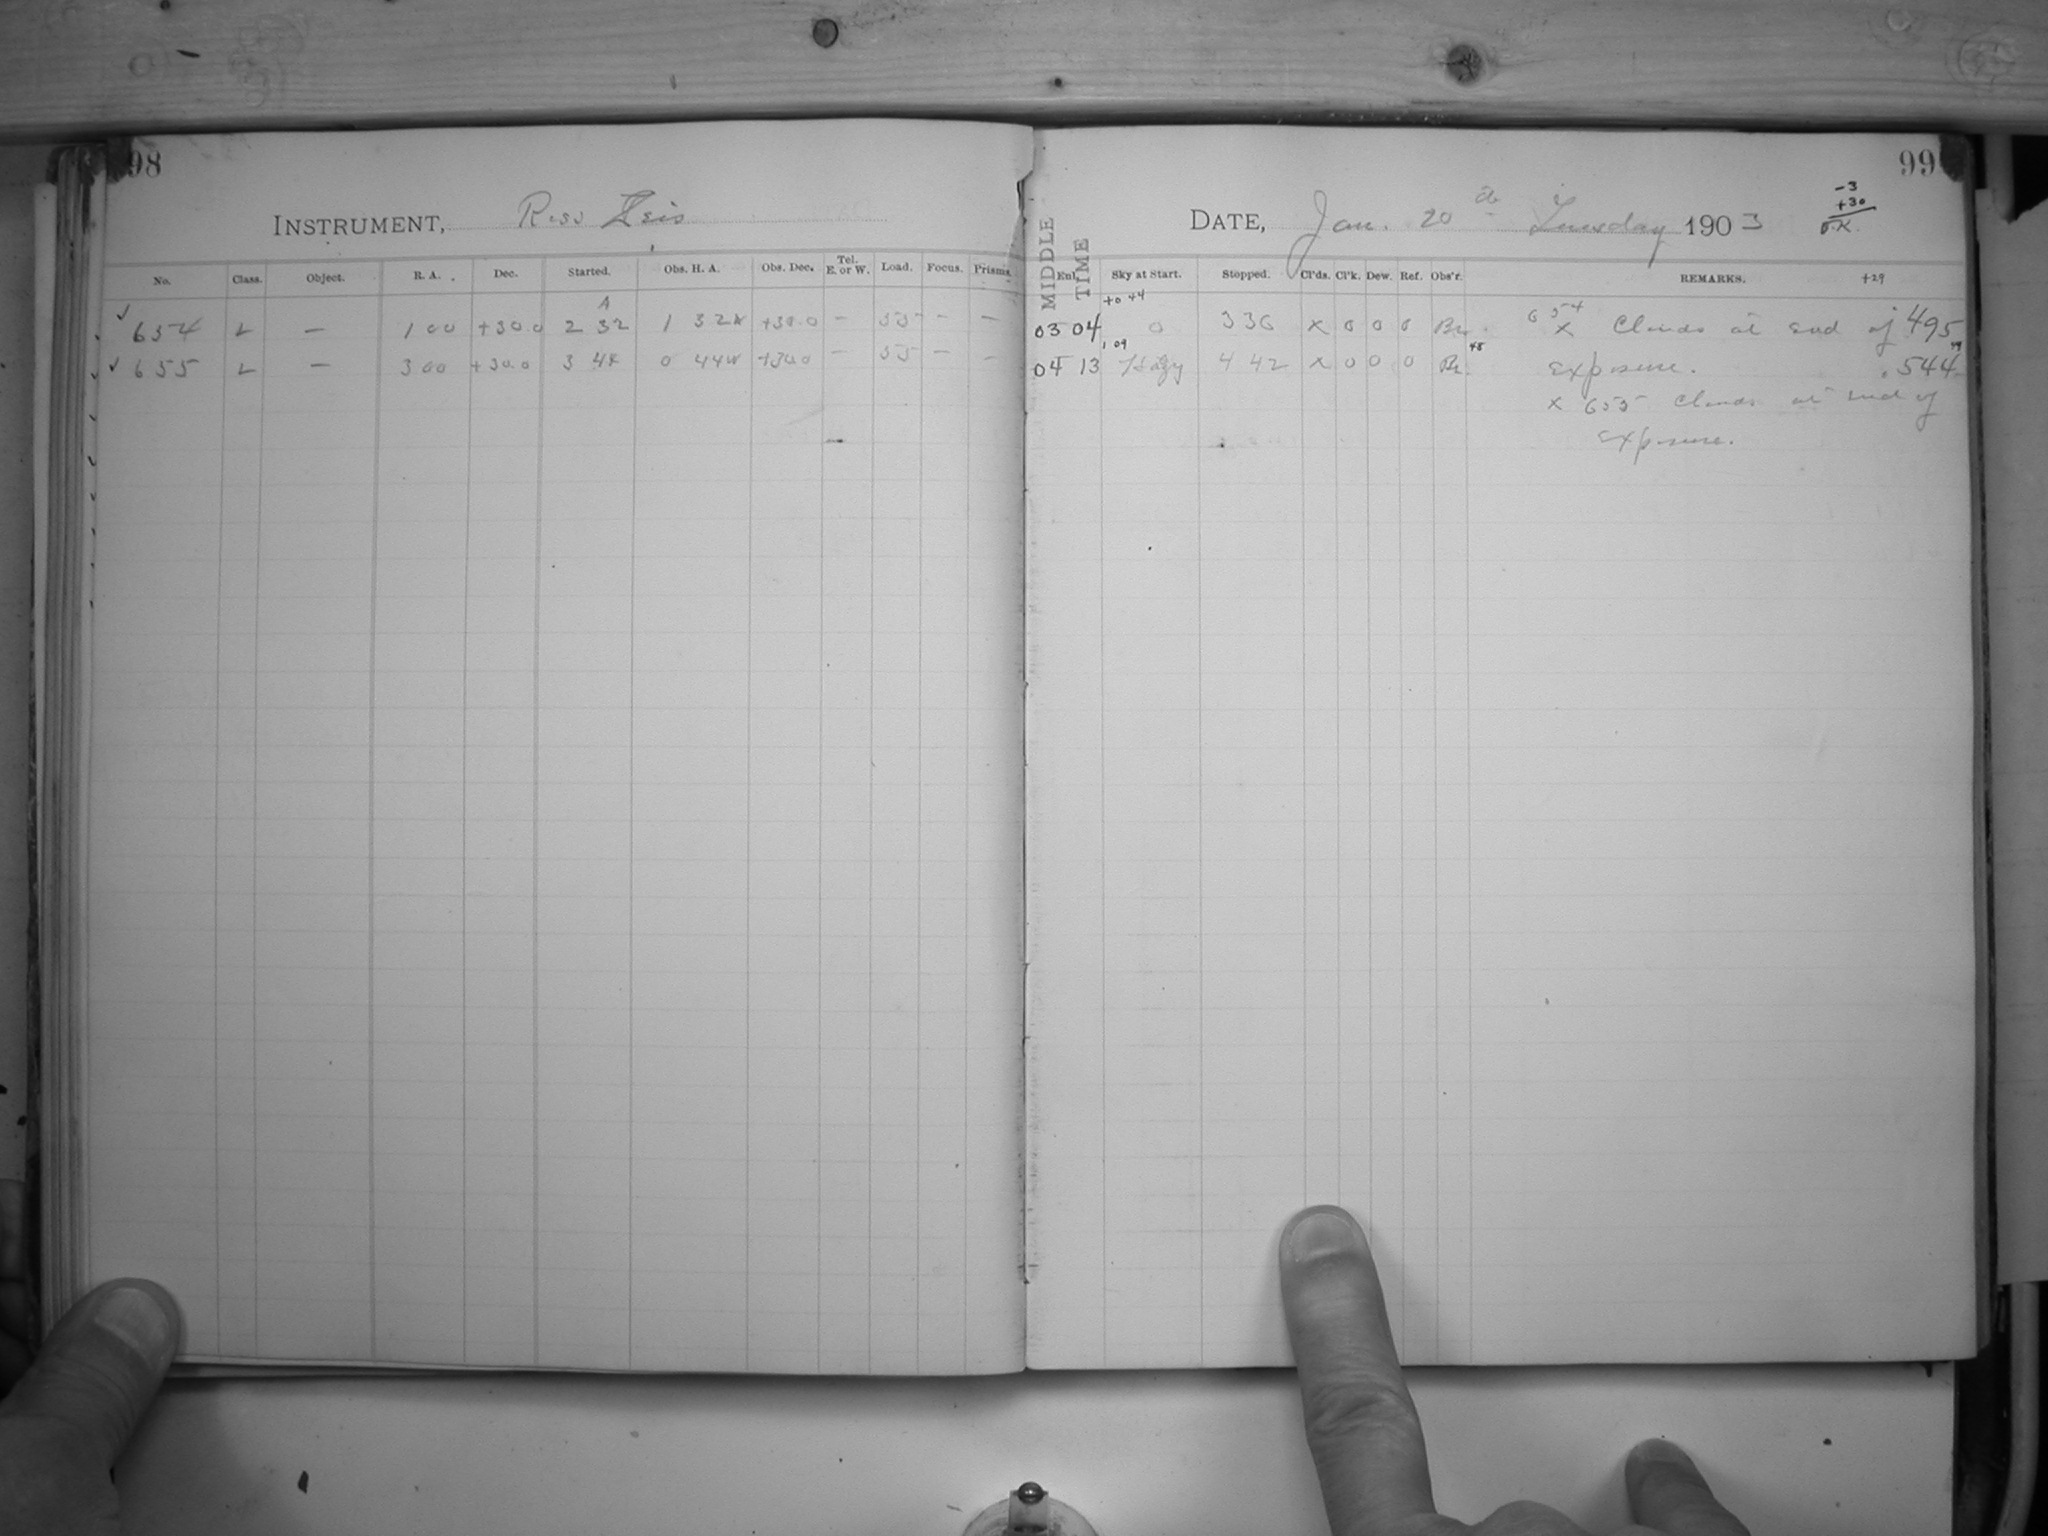 98
INSTRUMENT, Ross
No. Class. Object. R. A. Dec. Started. Obs. H. A. Obs. Dec. Tel. E. or W. Load. Focus. Prisms.
A
654 L — 1 00 +30.0 2 32 1 32 +30.0 — 55 — —
655 L — 3 00 +30.0 3 44 0 44 +30.0 — 55 — —
99
-3
+30
O.K.
DATE, Jan. 20 Tuesday 1903
MIDDLE TIME
Enl. Sky at Start. Stopped. Cl'ds. Cl'k. Dew. Ref. Obs'r. REMARKS. +29
+0 44
03 04 0 3 36 x 0 0 0 Br. 654 x Clouds at end of 495
1 09
04 13 Hazy 4 42 x 0 0 0 Br. 48 exposure. .544
x 655 Clouds at end of
exposure.